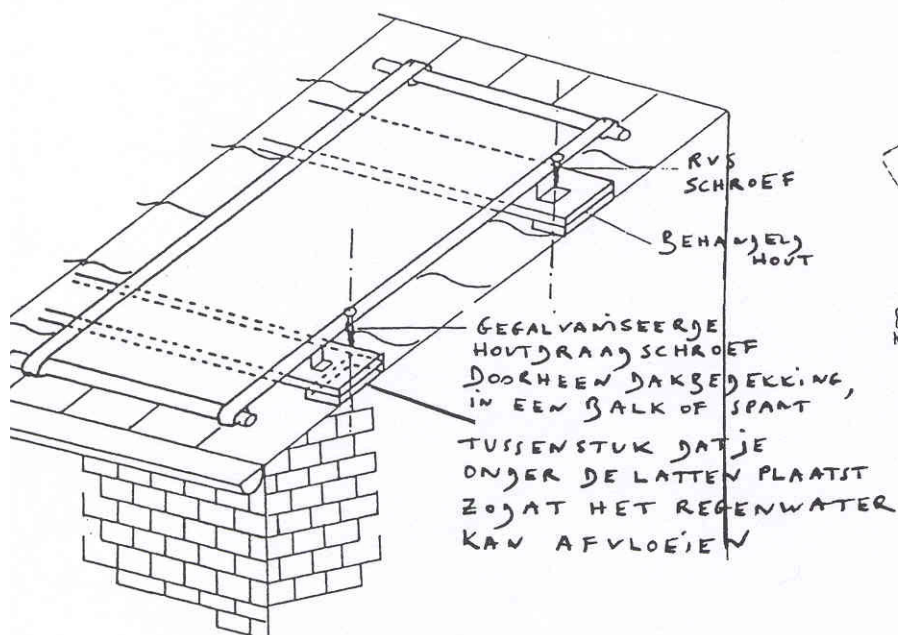 RVS
SCHROEF
BEHANDELD
HOUT
GEGALVANISEERDE
HOUTDRAADSCHROEF
DOORHEEN DAKBEDEKKING,
IN EEN BALK OF SPANT
TUSSENSTUK DAT JE
ONDER DE LATTEN PLAATST
ZODAT HET REGENWATER
KAN AFVLOEIEN